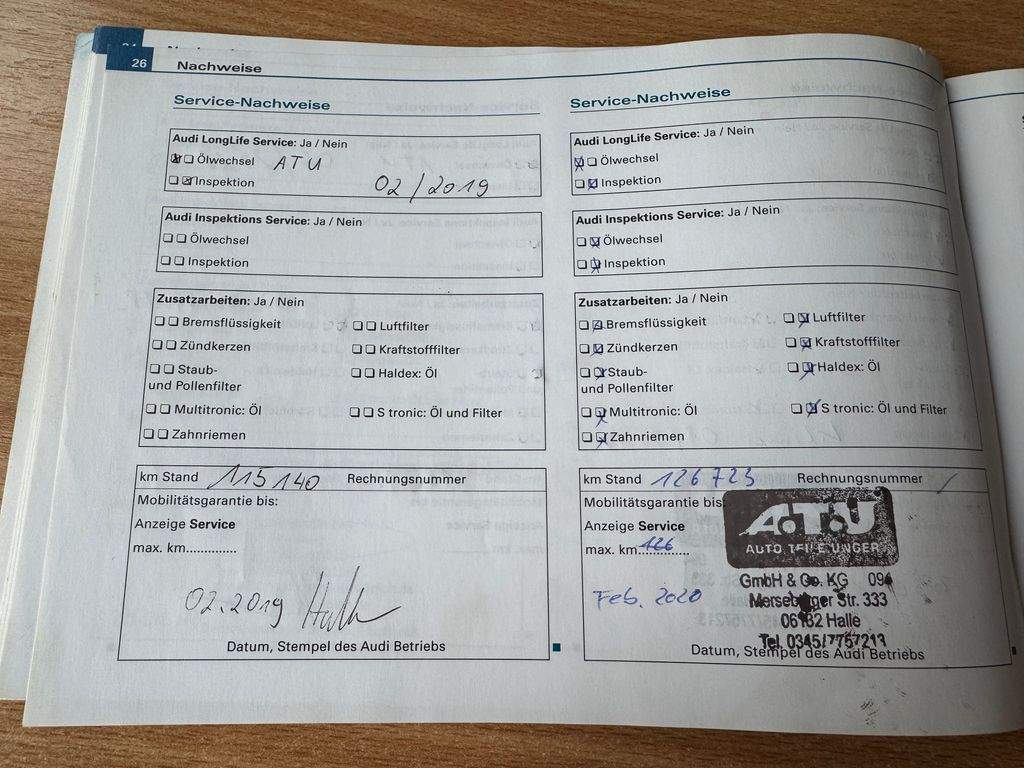 26 Nachweise
Service-Nachweise
Audi LongLife Service: Ja / Nein
Ölwechsel ATU
Inspektion 02/2019
Audi Inspektions Service: Ja / Nein
Ölwechsel
Inspektion
Zusatzarbeiten: Ja / Nein
Bremsflüssigkeit Luftfilter
Zündkerzen Kraftstofffilter
Staub- Haldex: Öl
und Pollenfilter
Multitronic: Öl S tronic: Öl und Filter
Zahnriemen
km Stand 115140 Rechnungsnummer
Mobilitätsgarantie bis:
Anzeige Service
max. km..............
02.2019
Datum, Stempel des Audi Betriebs
Service-Nachweise
Audi LongLife Service: Ja / Nein
Ölwechsel
Inspektion
Audi Inspektions Service: Ja / Nein
Ölwechsel
Inspektion
Zusatzarbeiten: Ja / Nein
Bremsflüssigkeit Luftfilter
Zündkerzen Kraftstofffilter
Staub- Haldex: Öl
und Pollenfilter
Multitronic: Öl S tronic: Öl und Filter
Zahnriemen
km Stand 126723 Rechnungsnummer
Mobilitätsgarantie bis:
Anzeige Service
max. km 126
Feb. 2020
A.T.U
AUTO TEILE UNGER
GmbH & Co. KG 094
Merseburger Str. 333
06132 Halle
Tel. 0345/7757213
Datum, Stempel des Audi Betriebs